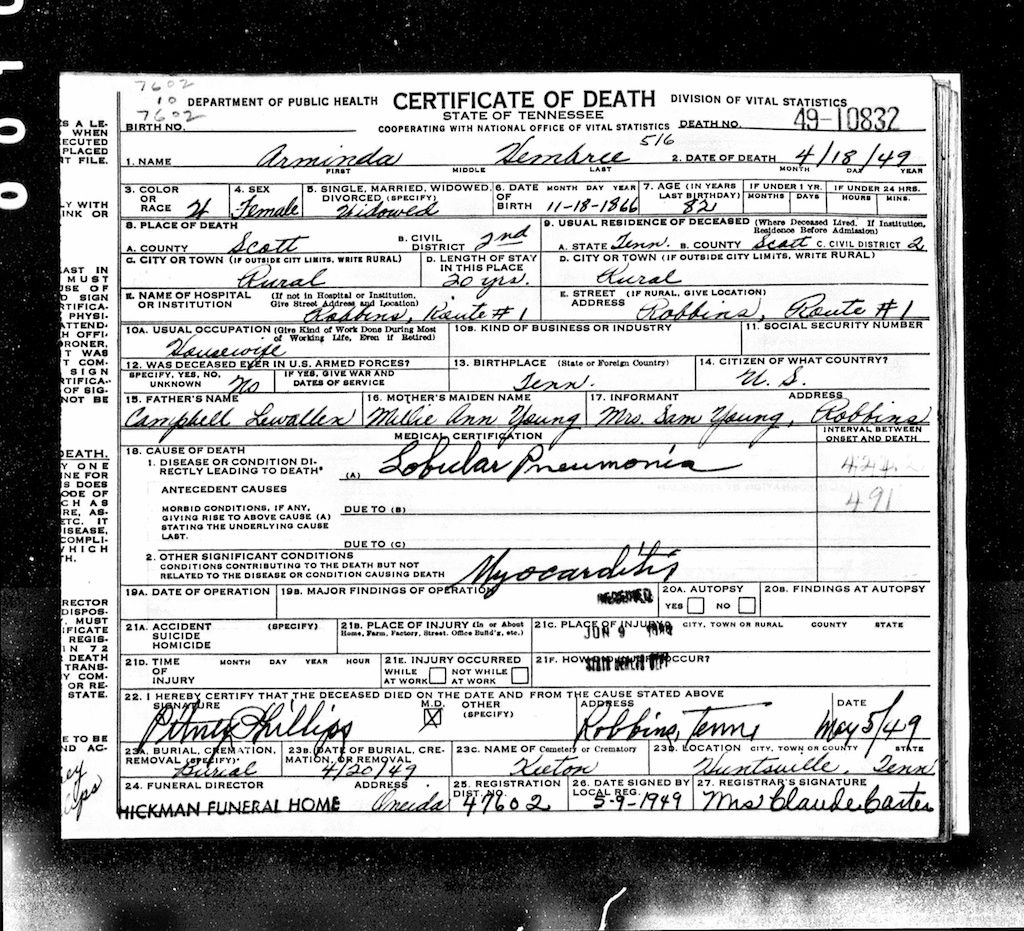 7602
10
7602
DEPARTMENT OF PUBLIC HEALTH CERTIFICATE OF DEATH DIVISION OF VITAL STATISTICS
STATE OF TENNESSEE
BIRTH NO. COOPERATING WITH NATIONAL OFFICE OF VITAL STATISTICS DEATH NO. 49-10832
516
1. NAME Arminda Hembree 2. DATE OF DEATH 4/18/49
FIRST MIDDLE LAST MONTH DAY YEAR
3. COLOR OR RACE W 4. SEX Female 5. SINGLE, MARRIED, WIDOWED, DIVORCED (SPECIFY) Widowed 6. DATE OF BIRTH MONTH DAY YEAR 11-18-1866 7. AGE (IN YEARS LAST BIRTHDAY) 82 IF UNDER 1 YR. MONTHS DAYS IF UNDER 24 HRS. HOURS MINS.
8. PLACE OF DEATH 9. USUAL RESIDENCE OF DECEASED (Where Deceased Lived. If Institution, Residence Before Admission)
A. COUNTY Scott B. CIVIL DISTRICT 2nd A. STATE Tenn. B. COUNTY Scott C. CIVIL DISTRICT 2
C. CITY OR TOWN (IF OUTSIDE CITY LIMITS, WRITE RURAL) Rural D. LENGTH OF STAY IN THIS PLACE 20 yrs. D. CITY OR TOWN (IF OUTSIDE CITY LIMITS, WRITE RURAL) Rural
E. NAME OF HOSPITAL OR INSTITUTION (If not in Hospital or Institution, Give Street Address and Location) Robbins, Route #1 E. STREET ADDRESS (IF RURAL, GIVE LOCATION) Robbins, Route #1
10A. USUAL OCCUPATION (Give Kind of Work Done During Most of Working Life, Even if Retired) Housewife 10B. KIND OF BUSINESS OR INDUSTRY 11. SOCIAL SECURITY NUMBER
12. WAS DECEASED EVER IN U.S. ARMED FORCES? SPECIFY, YES, NO, UNKNOWN No IF YES, GIVE WAR AND DATES OF SERVICE 13. BIRTHPLACE (State or Foreign Country) Tenn. 14. CITIZEN OF WHAT COUNTRY? U. S.
15. FATHER'S NAME Campbell Lewallen 16. MOTHER'S MAIDEN NAME Millie Ann Young 17. INFORMANT ADDRESS Mrs. Sam Young, Robbins
MEDICAL CERTIFICATION INTERVAL BETWEEN ONSET AND DEATH
18. CAUSE OF DEATH
1. DISEASE OR CONDITION DIRECTLY LEADING TO DEATH* (A) Lobular Pneumonia
ANTECEDENT CAUSES 491
MORBID CONDITIONS, IF ANY, GIVING RISE TO ABOVE CAUSE (A) STATING THE UNDERLYING CAUSE LAST. DUE TO (B)
DUE TO (C)
2. OTHER SIGNIFICANT CONDITIONS
CONDITIONS CONTRIBUTING TO THE DEATH BUT NOT RELATED TO THE DISEASE OR CONDITION CAUSING DEATH Myocarditis
19A. DATE OF OPERATION 19B. MAJOR FINDINGS OF OPERATION RECEIVED 20A. AUTOPSY YES NO 20B. FINDINGS AT AUTOPSY
21A. ACCIDENT SUICIDE HOMICIDE (SPECIFY) 21B. PLACE OF INJURY (In or About Home, Farm, Factory, Street, Office Build'g, etc.) 21C. PLACE OF INJURY CITY, TOWN OR RURAL COUNTY STATE
JUN 9
21D. TIME OF INJURY MONTH DAY YEAR HOUR 21E. INJURY OCCURRED WHILE AT WORK NOT WHILE AT WORK 21F. HOW DID INJURY OCCUR?
22. I HEREBY CERTIFY THAT THE DECEASED DIED ON THE DATE AND FROM THE CAUSE STATED ABOVE
SIGNATURE Phillips M.D. X OTHER (SPECIFY) ADDRESS Robbins, Tenn, DATE May 5/49
23A. BURIAL, CREMATION, REMOVAL (SPECIFY)* Burial 23B. DATE OF BURIAL, CREMATION, OR REMOVAL 4/20/49 23C. NAME OF Cemetery or Crematory Keeton 23D. LOCATION CITY, TOWN OR COUNTY STATE Huntsville Tenn
24. FUNERAL DIRECTOR ADDRESS HICKMAN FUNERAL HOME Oneida 25. REGISTRATION DIST. NO. 47602 26. DATE SIGNED BY LOCAL REG. 5-9-1949 27. REGISTRAR'S SIGNATURE Mrs Claude Carter